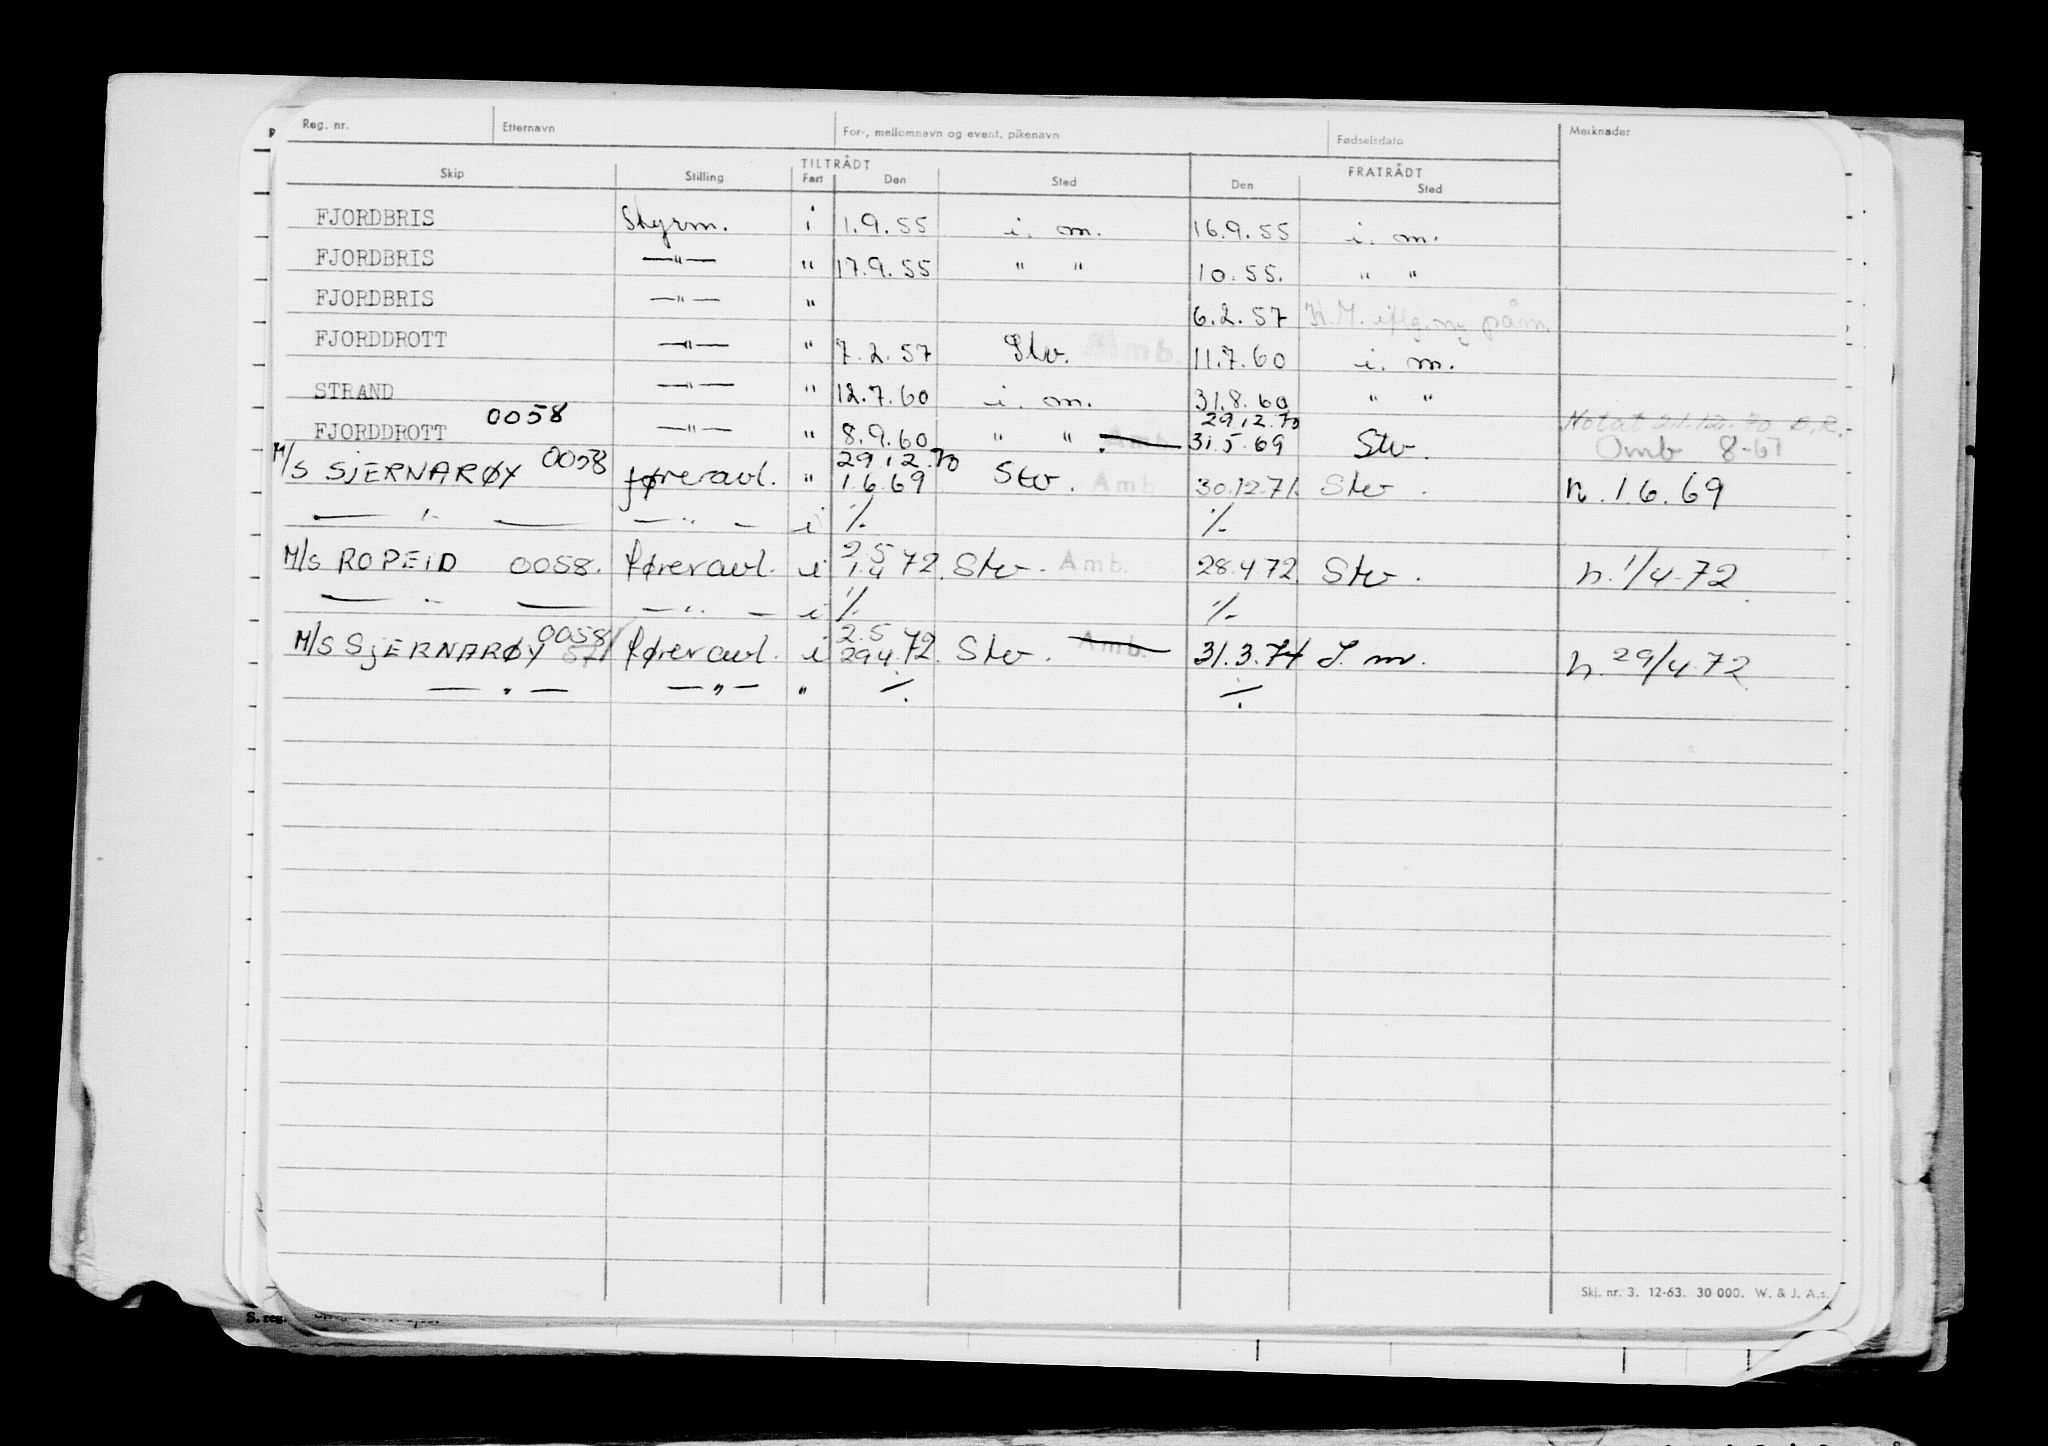 Reg. nr. Etternavn For-, mellomnavn og event. pikenavn Fødselsdato Merknader
TILTRÅDT FRATRÅDT
Skip Stilling Fart Den Sted Den Sted
FJORDBRIS Styrm. i 1.9.55 i. m. 16.9.55 i. m.
FJORDBRIS —"— " 17.9.55 " " 10.55. " "
FJORDBRIS —"— " 6.2.57 K.M. iflg. ny påm.
FJORDDROTT —"— " 7.2.57 Stv. Amb. 11.7.60 i. m.
STRAND —"— " 12.7.60 i. m. 31.8.60 " "
0058 29.12.70 Notat 21.12.70
FJORDDROTT —"— " 8.9.60 " " Amb. 31.5.69 Stv. Omb 8-67
29.12.70
M/S SJERNARØY 0058 føreravl. " 1.6.69 Stv. Amb 30.12.71. Stv. n. 1.6.69
— " — — " — i ./. ./.
2.5
M/S ROPEID 0058. føreravl. i 1.4 72. Stv. Amb. 28.4 72 Stv. n. 1/4-72
— " — — " — i ./. ./.
0058 2.5
M/S SJERNARØY føreravl. i 29.4.72. Stv. Amb. 31.3.74 I. m. n. 29/4-72
— " — — " — " ./. ./.
Skj. nr. 3. 12-63. 30 000. W. & J. A.s.
S. reg.